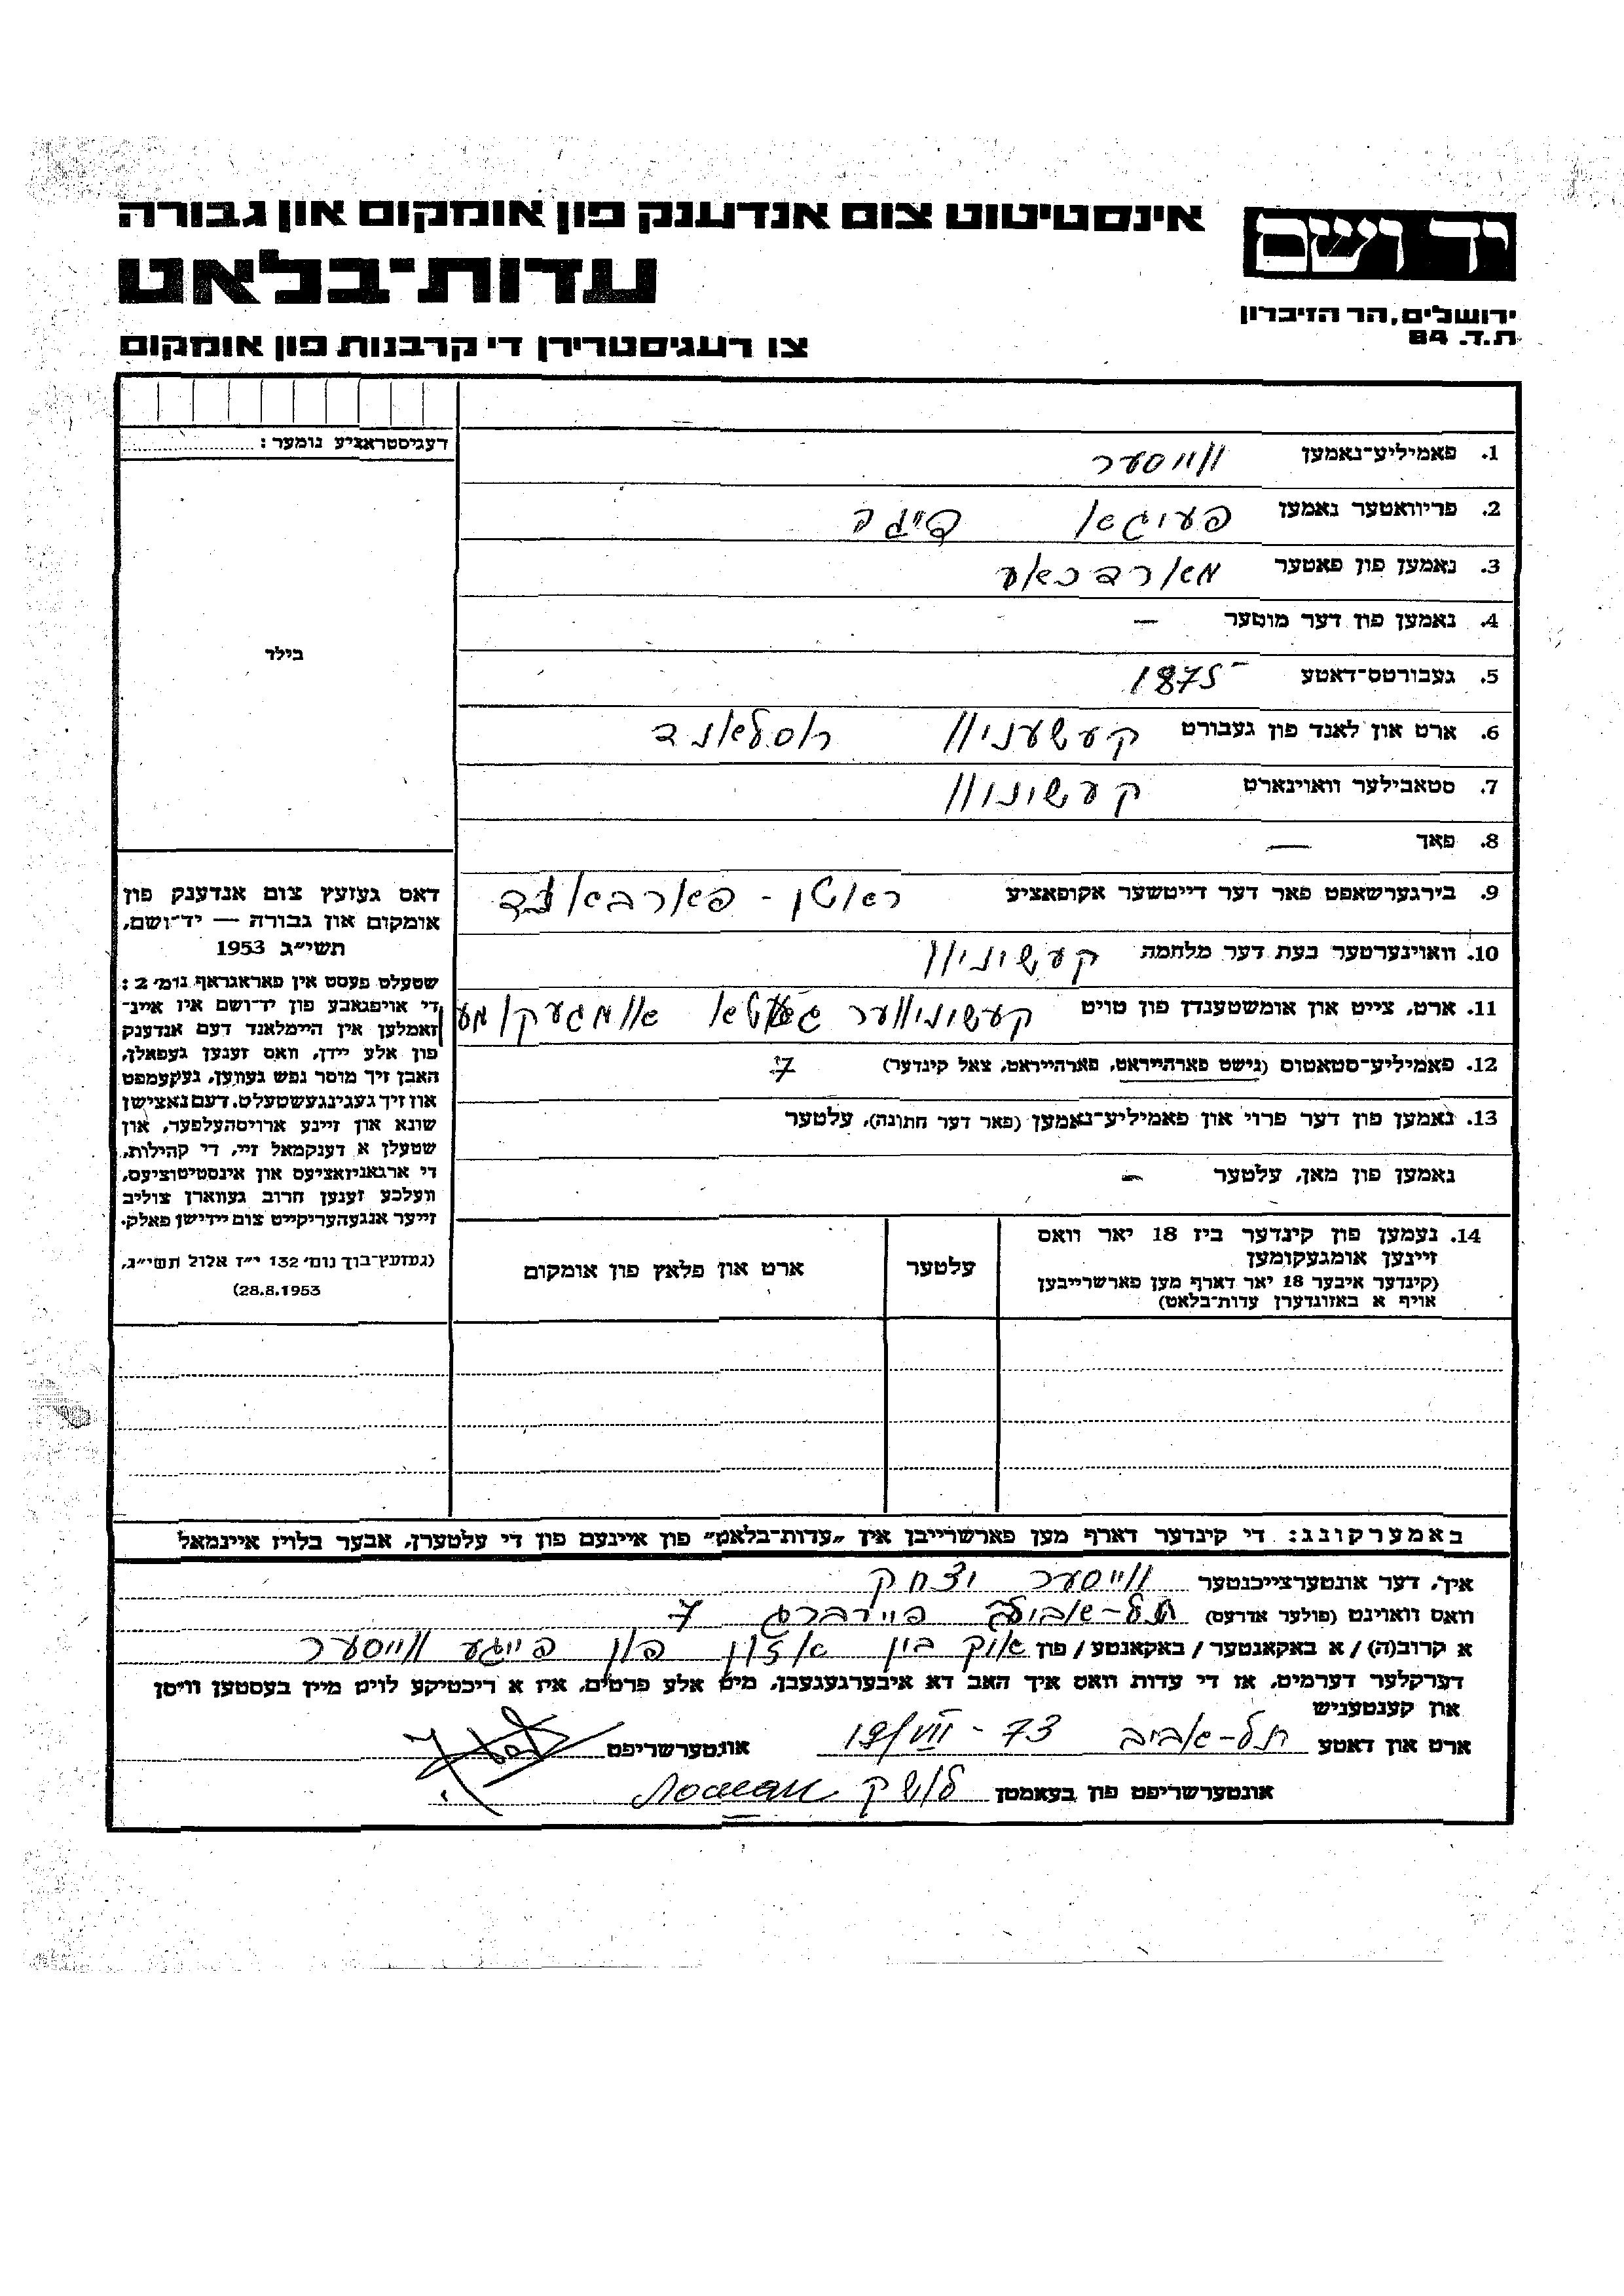 יד ושם
ירושלים, הר הזיכרון
ת.ד. 84
אינסטיטוט צום אנדענק פון אומקום און גבורה
עדות־בלאט
צו רעגיסטרירן די קרבנות פון אומקום
רעגיסטראציע נומער:
בילד
1. פאמיליע־נאמען ווייסער
2. פריוואטער נאמען פעיגא פייגע
3. נאמען פון פאטער
4. נאמען פון דער מוטער —
5. געבורטס־דאטע 1875
6. ארט און לאנד פון געבורט קעשעניוו רוסלאנד
7. סטאבילער וואוינארט קעשונוו
8. פאך —
9. בירגערשאפט פאר דער דייטשער אקופאציע ראטן - פארבאנד
10. וואוינערטער בעת דער מלחמה קעשוניוו
11. ארט, צייט און אומשטענדן פון טויט קעשוניווער געטא אומגעקומען
12. פאמיליע־סטאטוס (נישט פארהייראט, פארהייראט, צאל קינדער) 7
13. נאמען פון דער פרוי און פאמיליע־נאמען (פאר דער חתונה), עלטער
נאמען פון מאן, עלטער —
14. נעמען פון קינדער ביז 18 יאר וואס
זיינען אומגעקומען
(קינדער איבער 18 יאר דארף מען פארשרייבן
אויף א באזונדערן עדות־בלאט)
עלטער
ארט און פלאץ פון אומקום
דאס געזעץ צום אנדענק פון
אומקום און גבורה — יד־ושם,
תשי״ג 1953
שטעלט פעסט אין פאראגראף נומ׳ 2:
די אויפגאבע פון יד־ושם איז איינ־
זאמלען אין היימלאנד דעם אנדענק
פון אלע יידן, וואס זענען געפאלן,
האבן זיך מוסר נפש געווען, געקעמפט
און זיך געגינגעשטעלט. דעם נאצישן
שונא און זיינע ארויסהעלפער, און
שטעלן א דענקמאל זיי, די קהילות,
די ארגאניזאציעס און אינסטיטוציעס,
וועלכע זענען חרוב געווארן צוליב
זייער אנגעהעריקייט צום יידישן פאלק.
(געזעץ־בוך נומ׳ 132 י״ז אלול תשי״ג,
28.8.1953)
באמערקונג: די קינדער דארף מען פארשרייבן אין „עדות־בלאט״ פון איינעם פון די עלטערן, אבער בלויז איינמאל
איך, דער אונטערצייכנטער ווייסער יצחק
וואס וואוינט (פולער אדרעס) תל-אביב 7
א קרוב(ה) / א באקאנטער / באקאנטע / פון איך בין א זון פון פייגע ווייסער
דערקלער דערמיט, אז די עדות וואס איך האב דא איבערגעגעבן, מיט אלע פרטים, איז א ריכטיקע לויט מיין בעסטען וויסן
און קענטעניש
ארט און דאטע תל-אביב 19/VII - 73 אונטערשריפט
אונטערשריפט פון בעאמטן